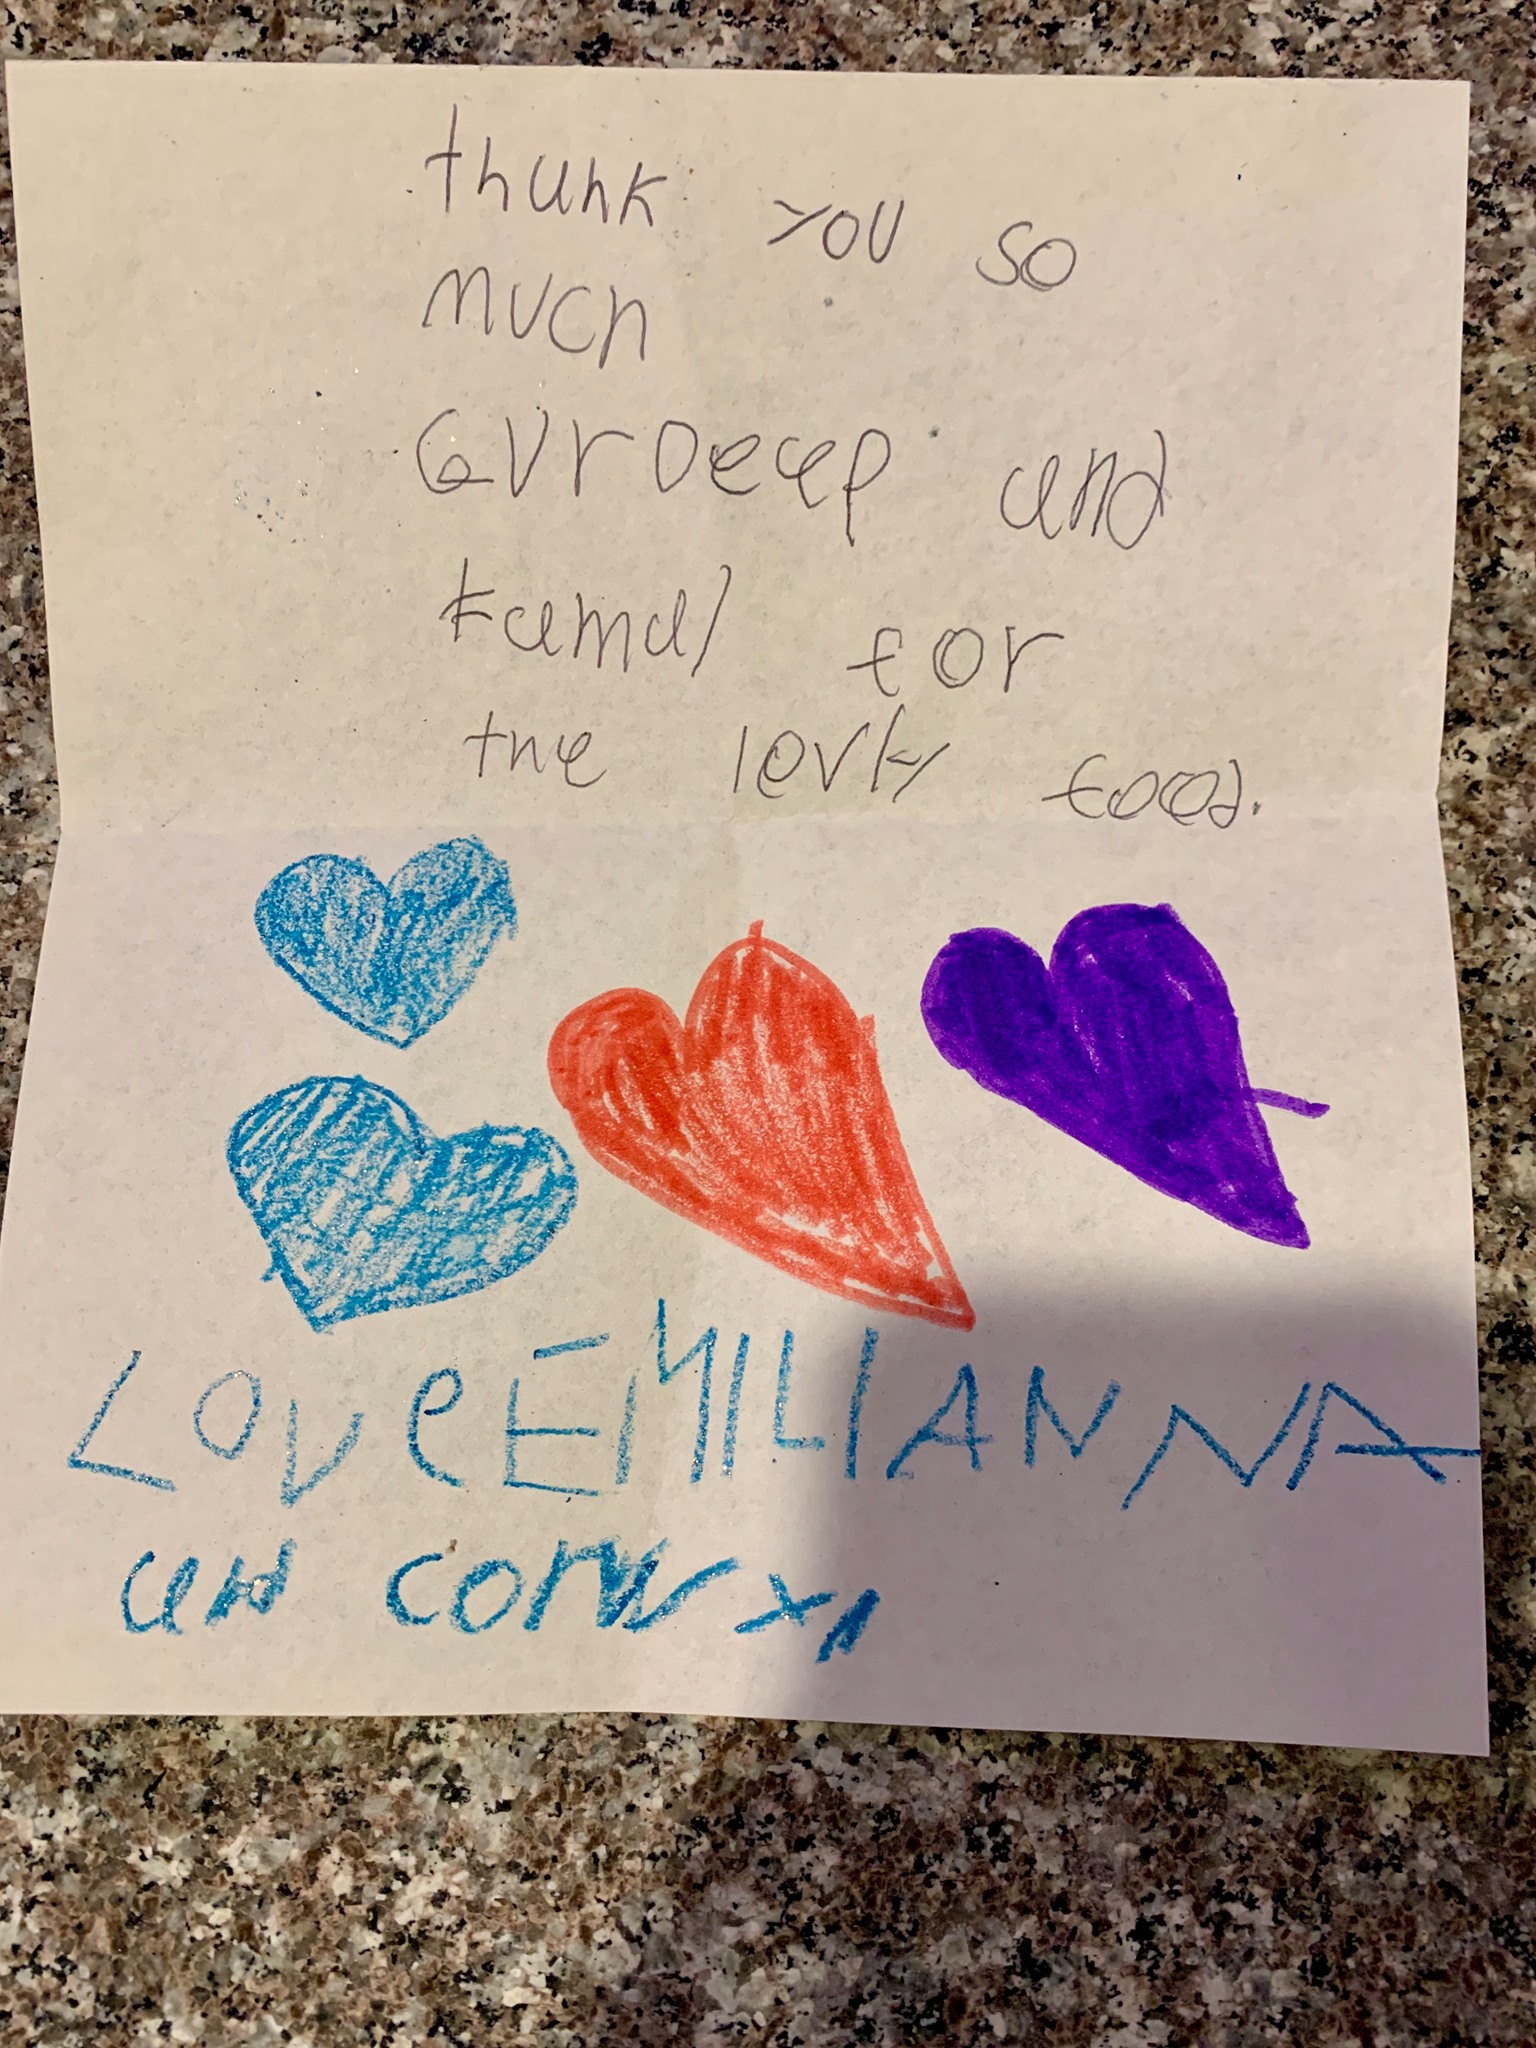 thank you so
much
Gurdeep and
kamal for
the lovly food.
LOVe EMILIANNA
and